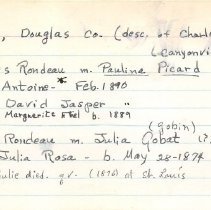 , Douglas Co. (desc. of Charle
(Canyonvi
s Rondeau m. Pauline Picard
Antoine -* Feb. 1890
David Jasper "
Marguerite Ethel b. 1889
(gobin)
Rondeau m. Julia Gobat (?)
Julia Rosa - b. May 28-1874
ulie died. q.v. (1876) at St. Louis